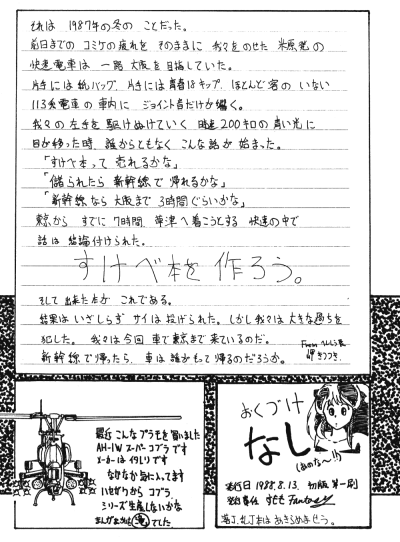 それは 1987年の冬の ことだった。
前日までの コミケの疲れを そのままに 我々をのせた 米原発の
快速電車は 一路 大阪を目指していた。
片手には紙バッグ、片手には青春18キップ、ほとんど客の いない
113系電車の車内に ジョイント音だけが響く。
我々の 左手を 駆けぬけていく 時速200キロの青い光に
目が移った時、誰からともなく こんな話が 始まった。
「すけべ本って 売れるかな」
「儲られたら 新幹線で 帰れるかな」
「新幹線なら 大阪まで 3時間ぐらいかな」
東京から すでに 7時間、草津へ着こうとする 快速の中で
話は 結論付けられた。
すけべ本を 作ろう。
そして 出来た本が これである。
結果は いざしらず サイは投げられた。しかし我々は大きな過ちを
犯した。 我々は今回 車で東京まで来ているのだ。
新幹線で帰ったら、車は誰がもって帰るのだろうか。
From へんしう長
岬 きつつき
最近 こんなプラモを 買いました
AH-1W スーパーコブラです
メーカーは イタレリ です
なかなか気に入ってます
ハセガワから コブラ
シリーズ生産しないかな
おくづけ
なし
発行日 1988.8.13. 初版 第一刷
Fantasy
落丁、乱丁本は あきらめませう。